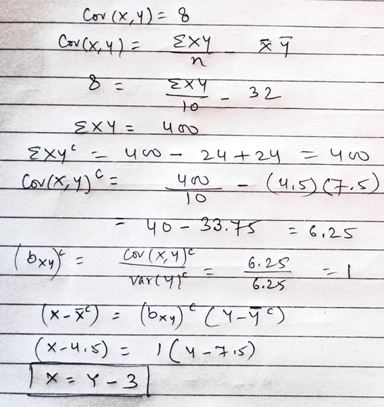 Cov(x,y) = 8
Cov(x,y) = ΣXY/n - x̄ ȳ
8 = ΣXY/10 - 32
ΣXY = 400
ΣXYᶜ = 400 - 24 + 24 = 400
Cov(x,y)ᶜ = 400/10 - (4.5)(7.5)
= 40 - 33.75 = 6.25
(bxy)ᶜ = Cov(x,y)ᶜ/var(y)ᶜ = 6.25/6.25 = 1
(x-x̄ᶜ) = (bxy)ᶜ (y-ȳᶜ)
(x-4.5) = 1(y-7.5)
x = y - 3